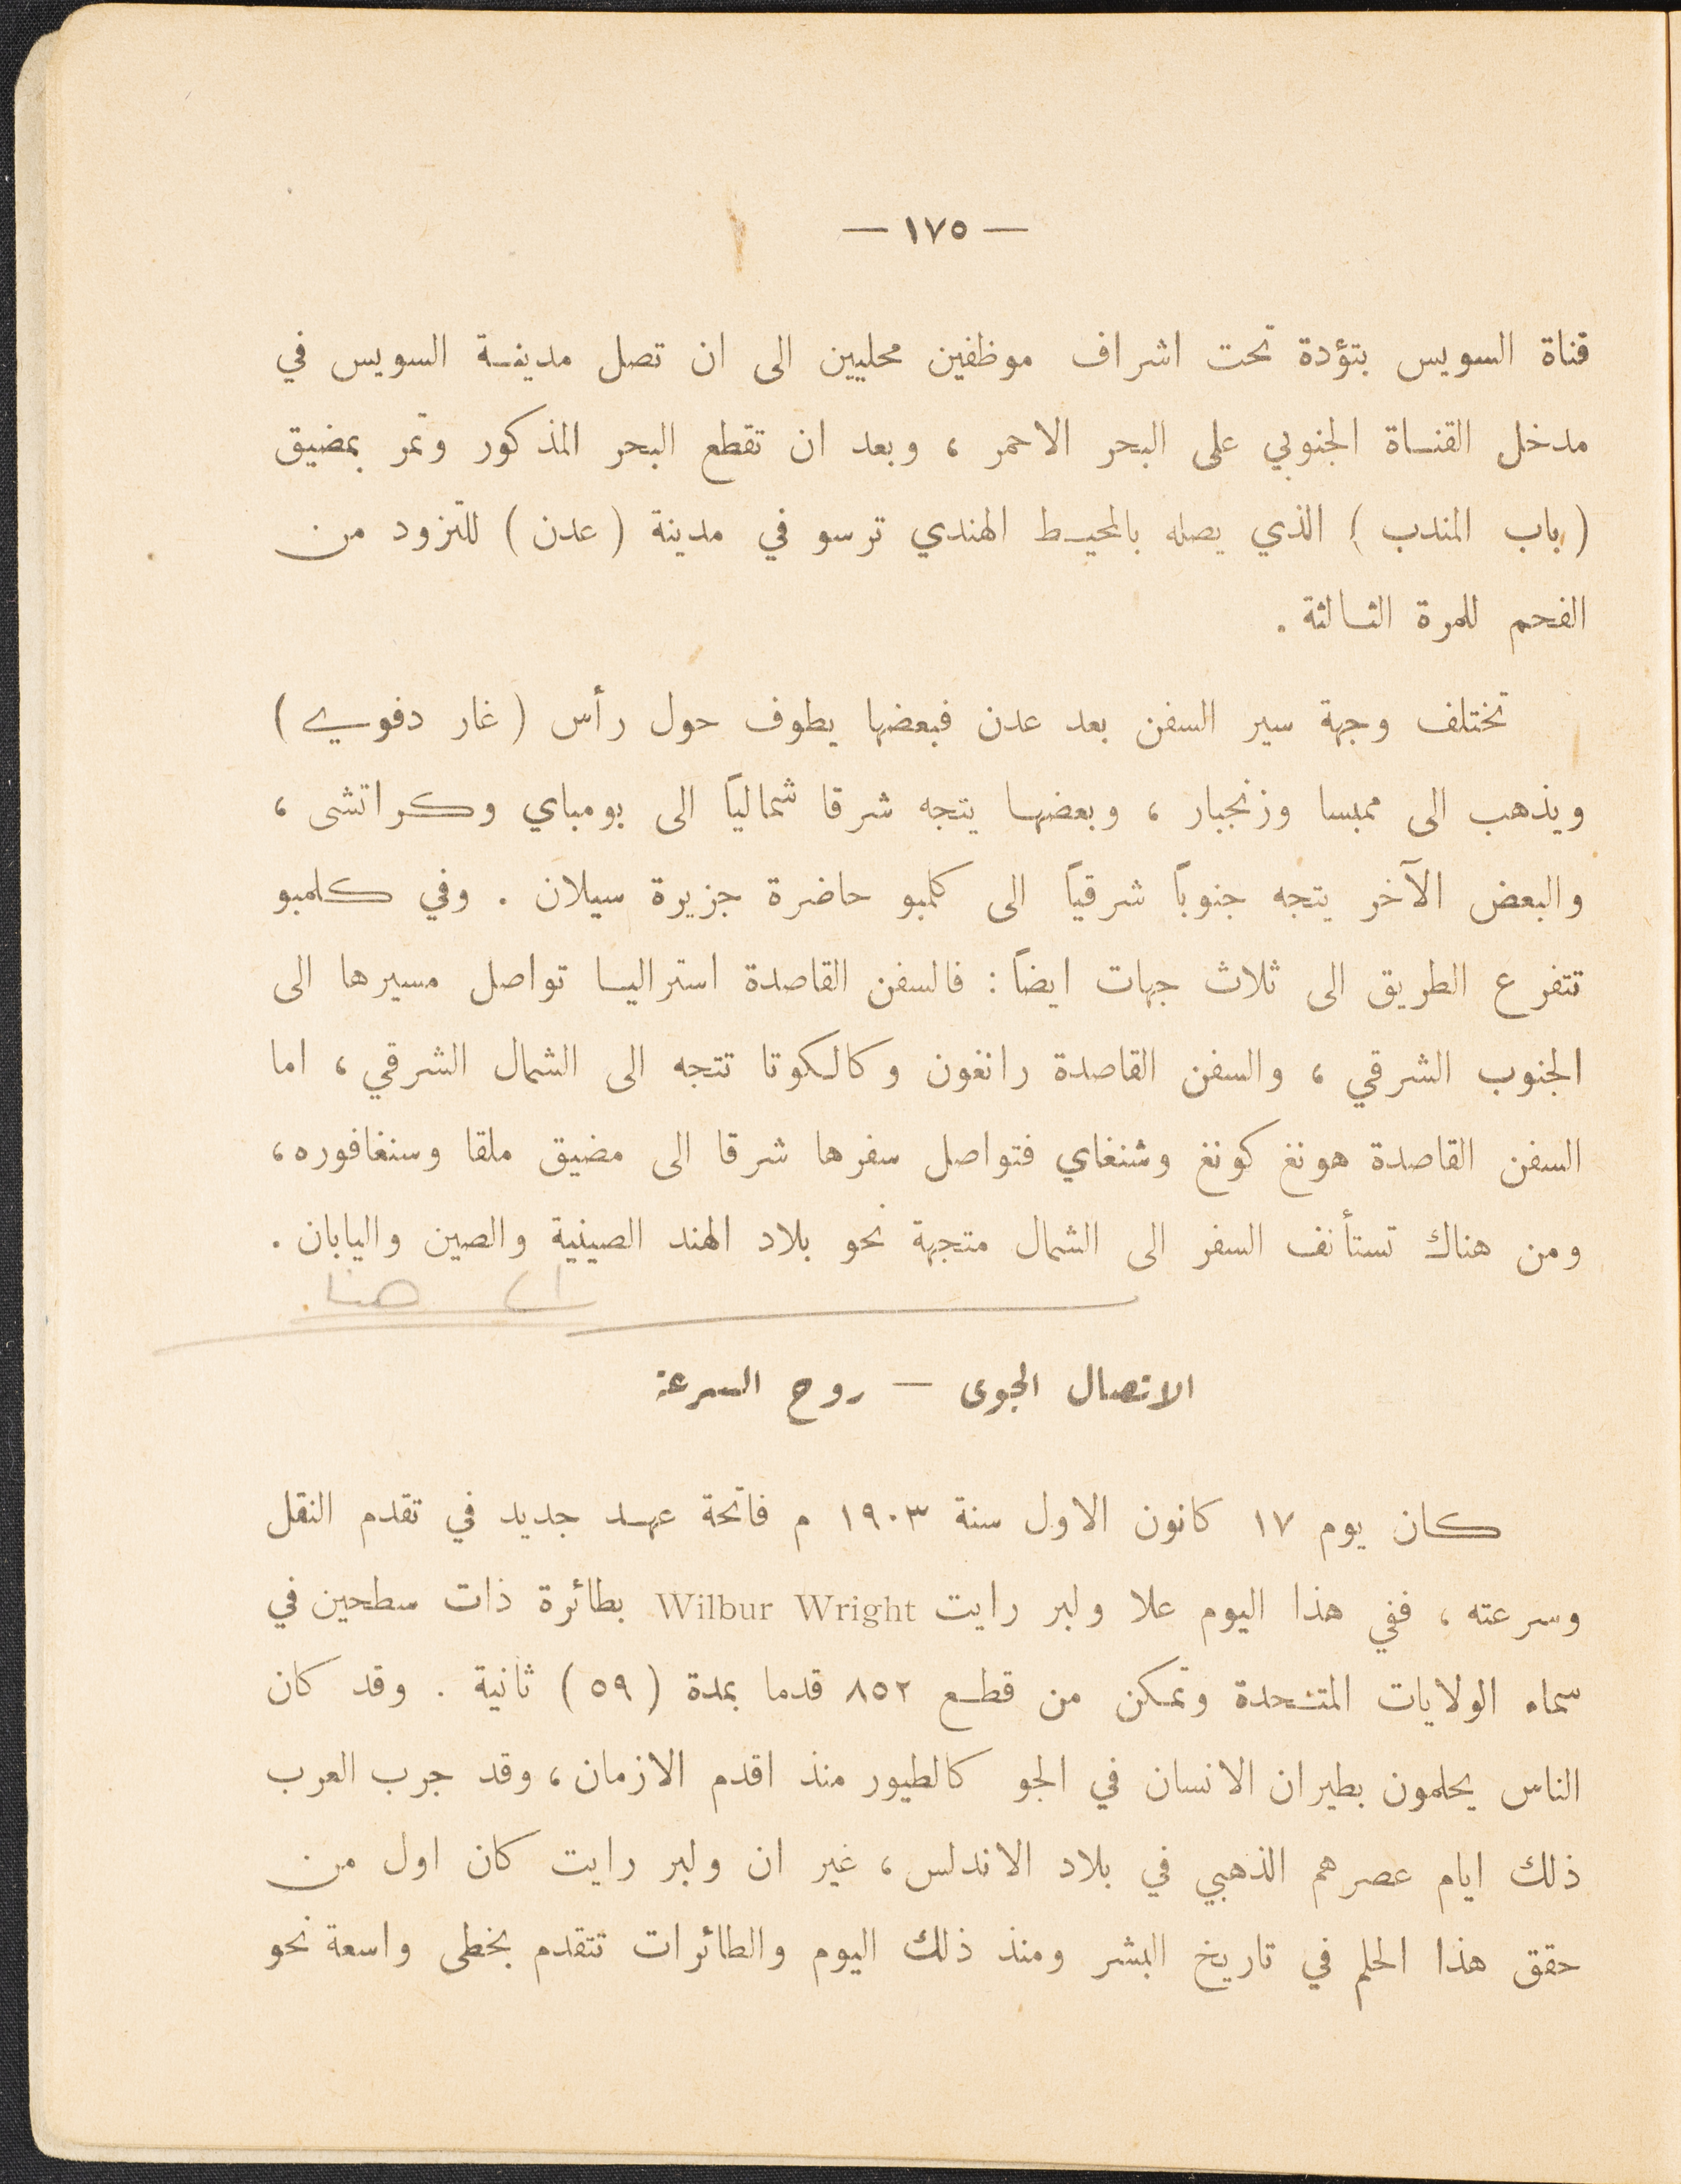 — ١٧٥ —
قناة السويس بتؤدة تحت اشراف موظفين محليين الى ان تصل مدينة السويس في
مدخل القناة الجنوبي على البحر الاحمر ، وبعد ان تقطع البحر المذكور وتمر بمضيق
( باب المندب ) الذي يصله بالمحيط الهندي ترسو في مدينة ( عدن ) للتزود من
الفحم للمرة الثالثة .
تختلف وجهة سير السفن بعد عدن فبعضها يطوف حول رأس ( غار دفوي )
ويذهب الى ممبسا وزنجبار ، وبعضها يتجه شرقا شمالياً الى بومباي وكراتشى ،
والبعض الآخر يتجه جنوباً شرقياً الى كلمبو حاضرة جزيرة سيلان . وفي كلمبو
تتفرع الطريق الى ثلاث جهات ايضاً : فالسفن القاصدة استراليا تواصل مسيرها الى
الجنوب الشرقي ، والسفن القاصدة رانغون وكالكوتا تتجه الى الشمال الشرقي ، اما
السفن القاصدة هونغ كونغ وشنغاي فتواصل سفرها شرقا الى مضيق ملقا وسنغافوره ،
ومن هناك تستأنف السفر الى الشمال متجهة نحو بلاد الهند الصينية والصين واليابان .
الى هنا .
الاتصال الجوى — روح السرعة
كان يوم ١٧ كانون الاول سنة ١٩٠٣ م فاتحة عهد جديد في تقدم النقل
وسرعته ، ففي هذا اليوم علا ولبر رايت Wilbur Wright بطائرة ذات سطحين في
سماء الولايات المتحدة وتمكن من قطع ٨٥٢ قدما بمدة ( ٥٩ ) ثانية . وقد كان
الناس يحلمون بطيران الانسان في الجو كالطيور منذ اقدم الازمان ، وقد جرب العرب
ذلك ايام عصرهم الذهبي في بلاد الاندلس ، غير ان ولبر رايت كان اول من
حقق هذا الحلم في تاريخ البشر ومنذ ذلك اليوم والطائرات تتقدم بخطى واسعة نحو